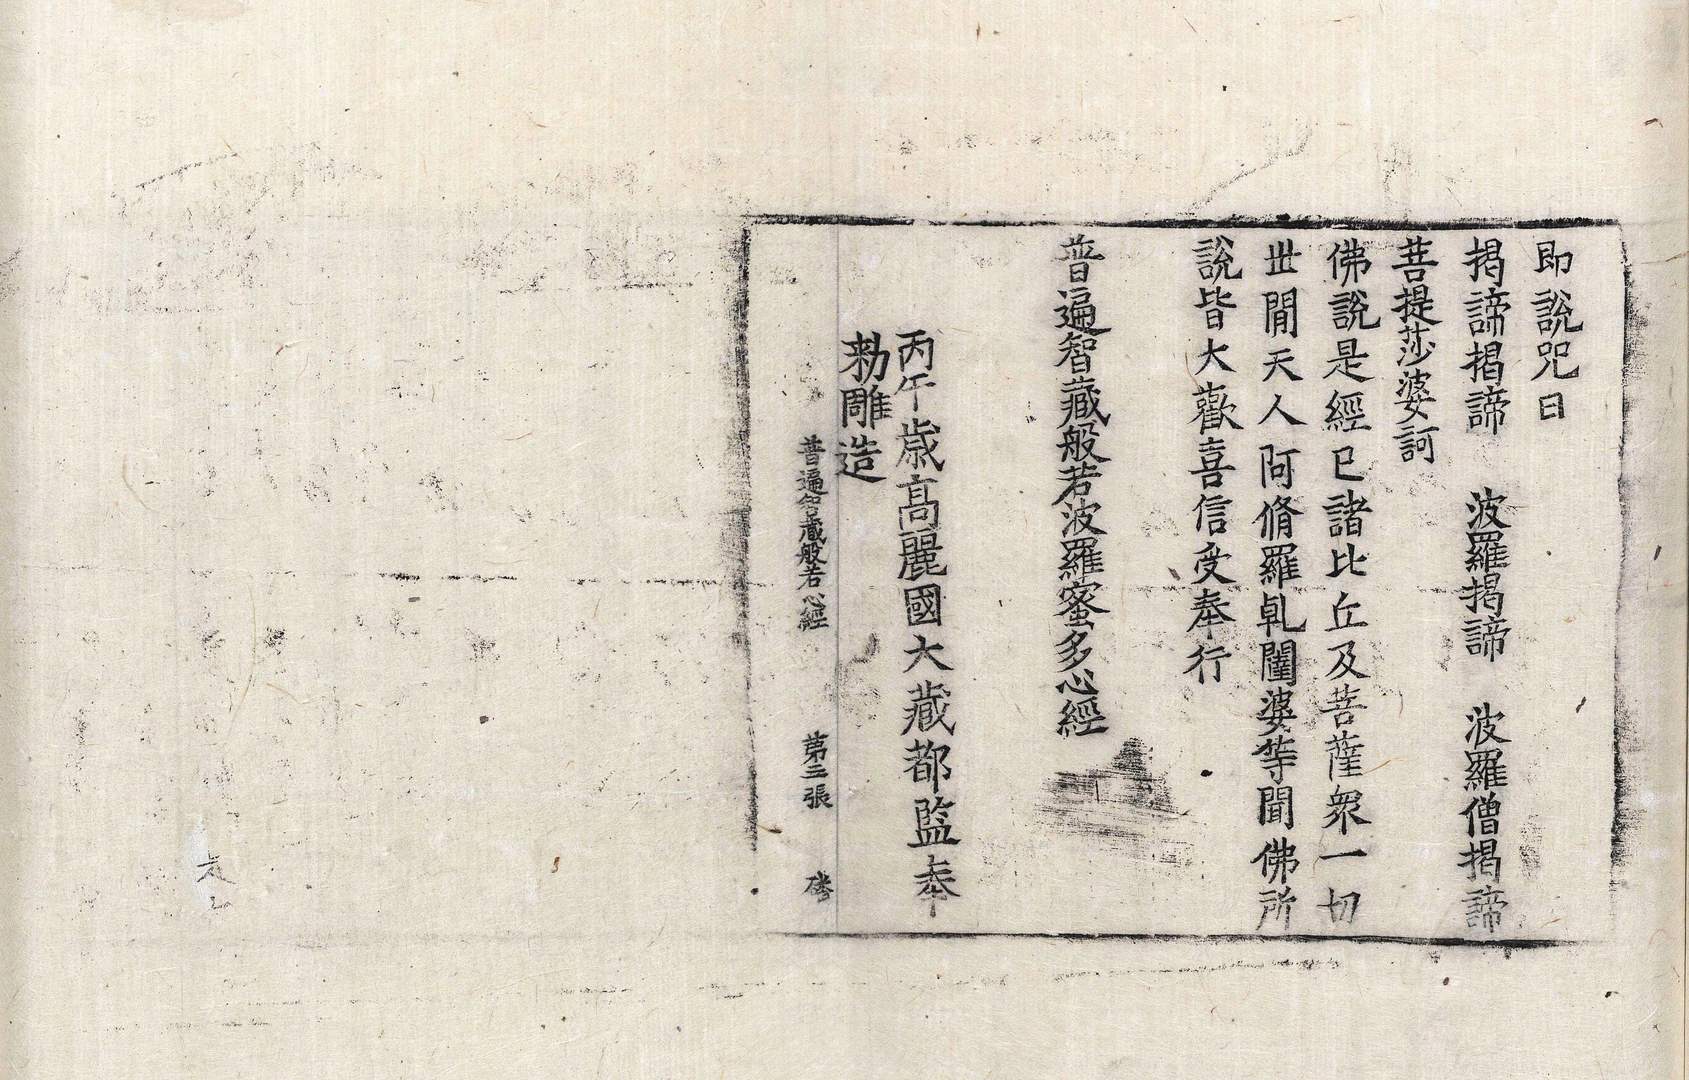 即說咒曰
揭諦揭諦　波羅揭諦　波羅僧揭諦
菩提莎婆訶
佛說是經已諸比丘及菩薩衆一切
世閒天人阿脩羅乹闥婆等聞佛所
說皆大歡喜信受奉行
普遍智藏般若波羅蜜多心經
丙午歳高麗國大藏都監奉
勑雕造
普遍智藏般若心經　第三張